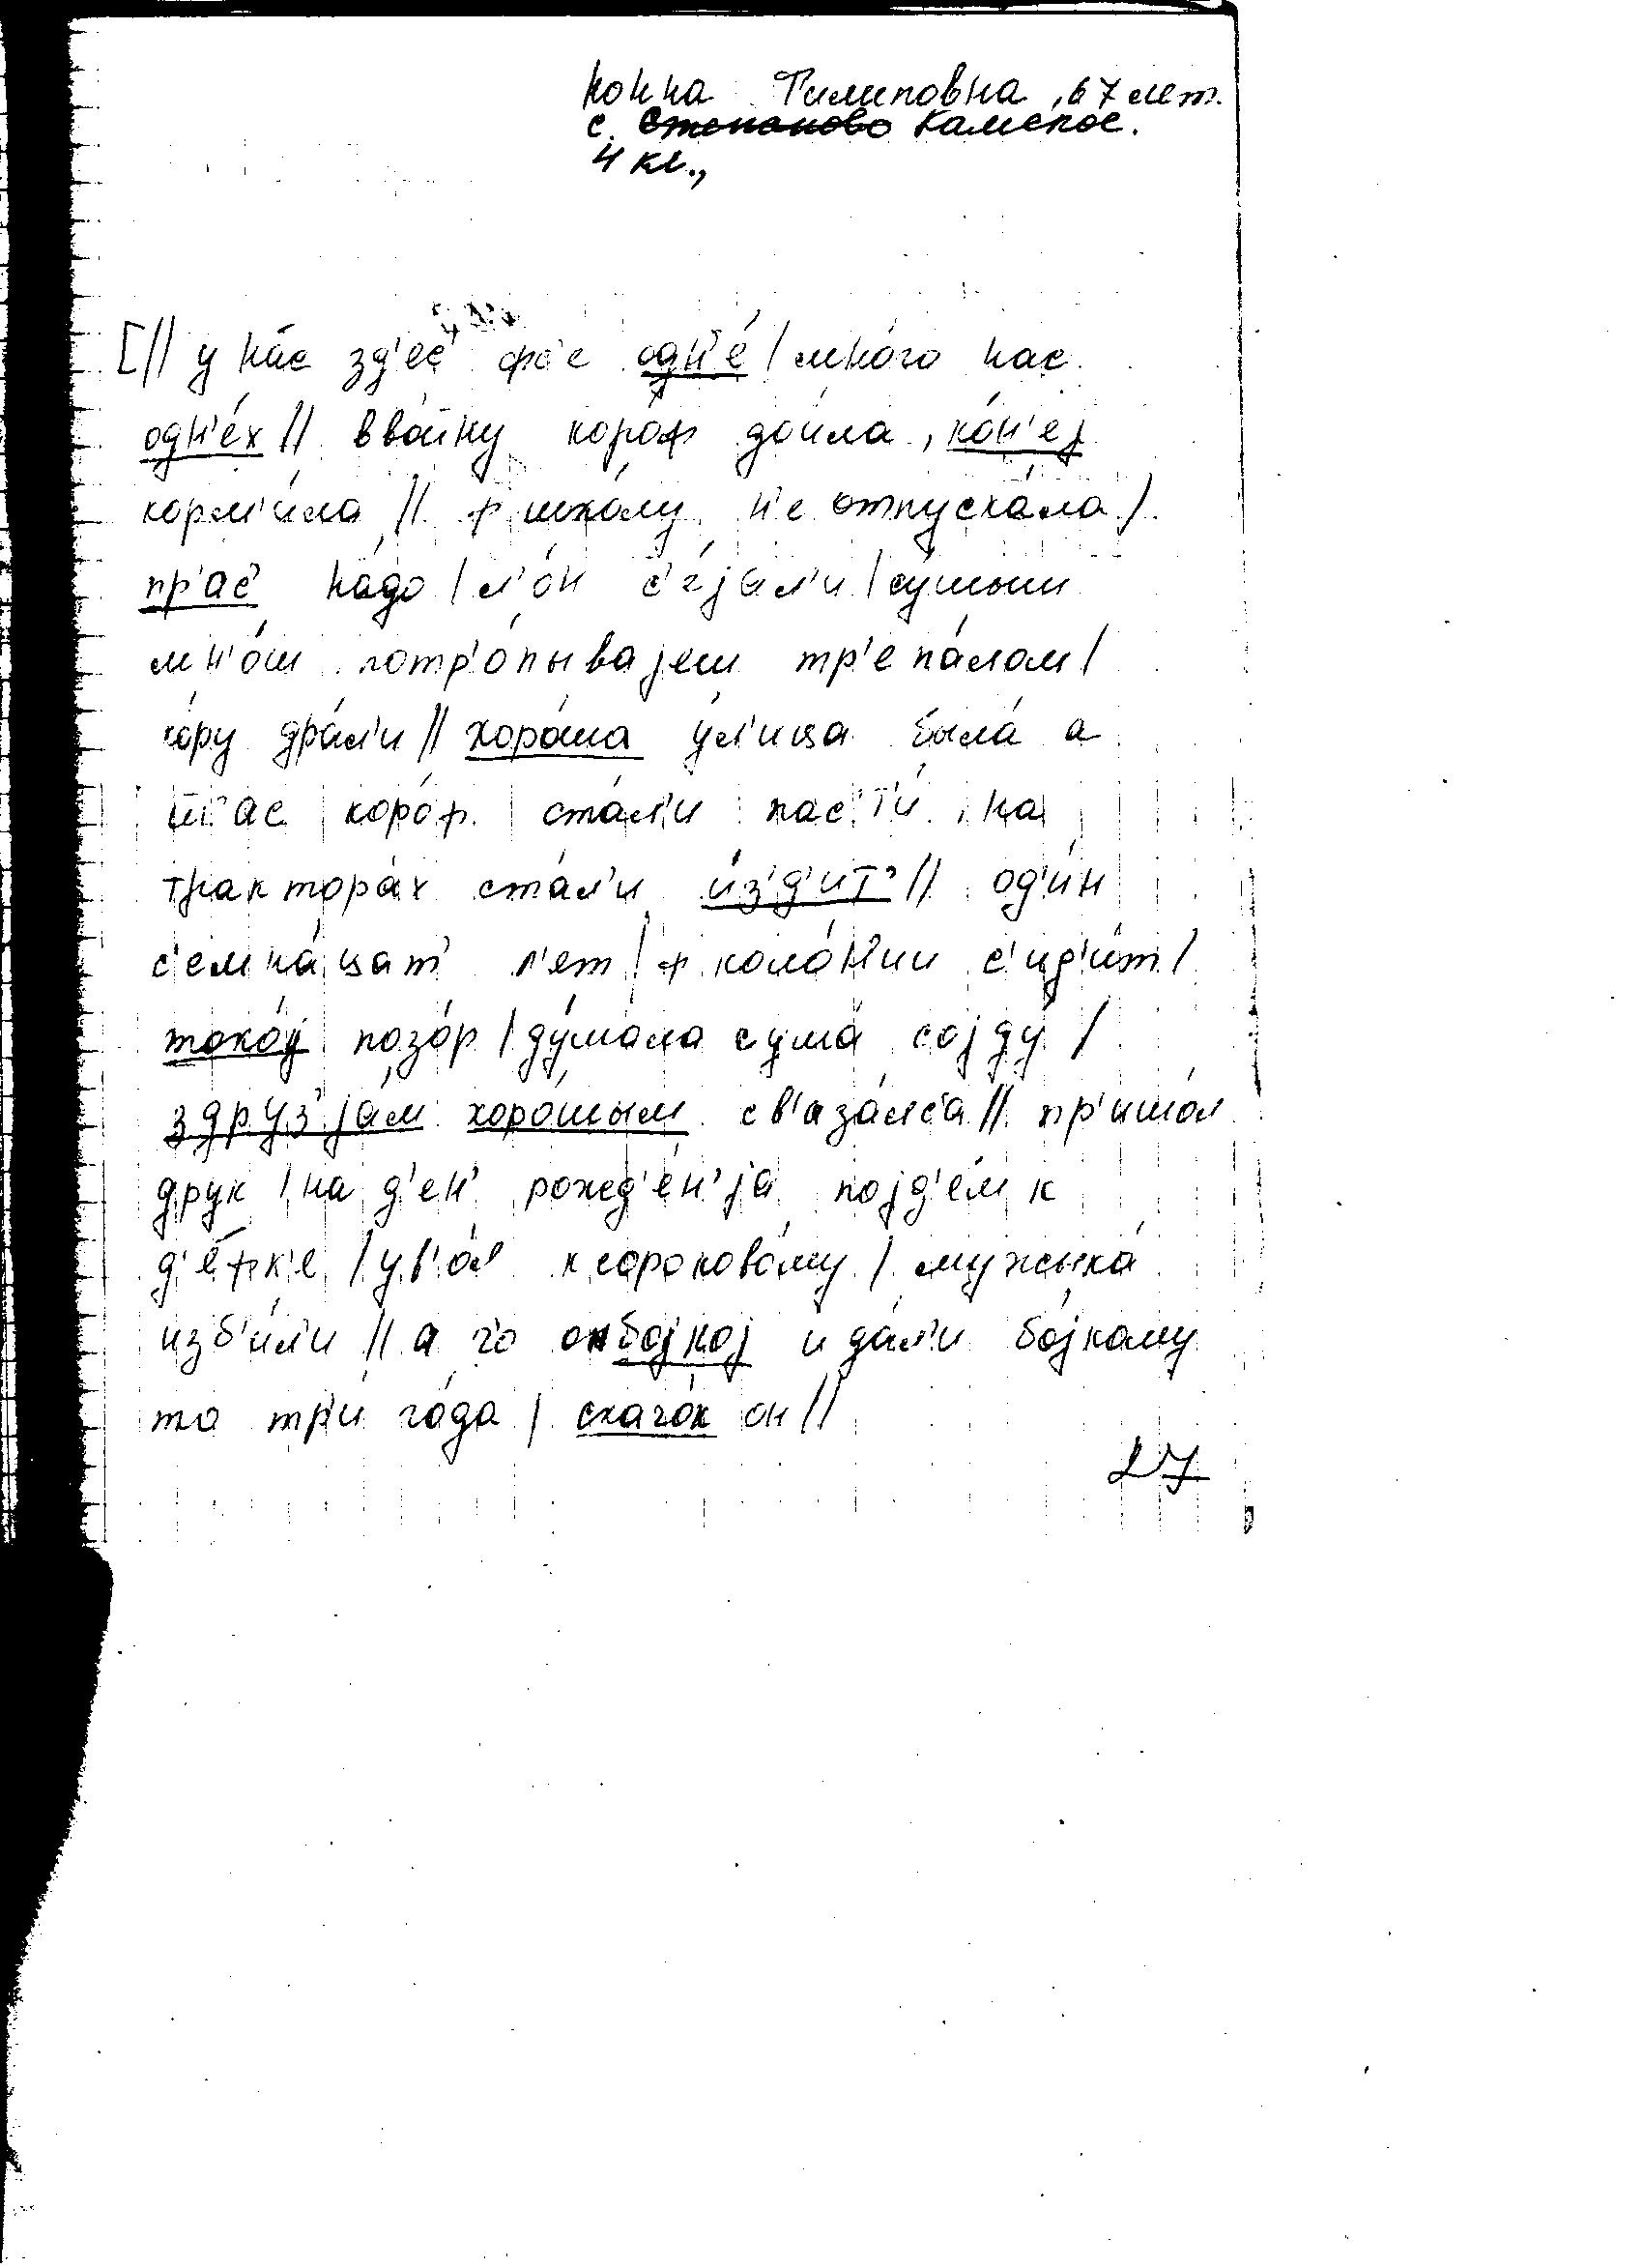 Нонна Филиповна, 67 лет.
с. Степаново Камское.
4 кл.,
[// у на́с зд'ес' фс'е одн'е́ / мно́го нас
одн'е́х // ввойну́ коро́ф дои́ла, ко́н'еј
корм'и́ла // ф шко́лу н'е отпуска́ла /
пр'ас' на́до / л'о́н с'е́јал'и / су́шыш
мн'о́ш потр'о́пывајеш тр'епа́лом /
ко́ру дра́л'и // хоро́ша у́л'ица была́ а
ш'ас коро́ф ста́л'и пас'т'и́ на
трактора́х ста́л'и и́з'д'ит' // од'и́н
с'емна́цат' л'ет / ф коло́н'ии с'ид'и́т /
токо́ј позо́р / ду́мала сума́ сојду́ /
здруз'ја́м хоро́шым св'аза́лс'а // пр'ишо́л
друк / на д'ен' рожд'е́н'ја појд'о́м к
д'е́фк'е / ув'о́л к сороково́му / мужыка́
изб'и́л'и // а го он бо́јкој и да́л'и бо́јкому
то тр'и го́да / скачо́к он //
27